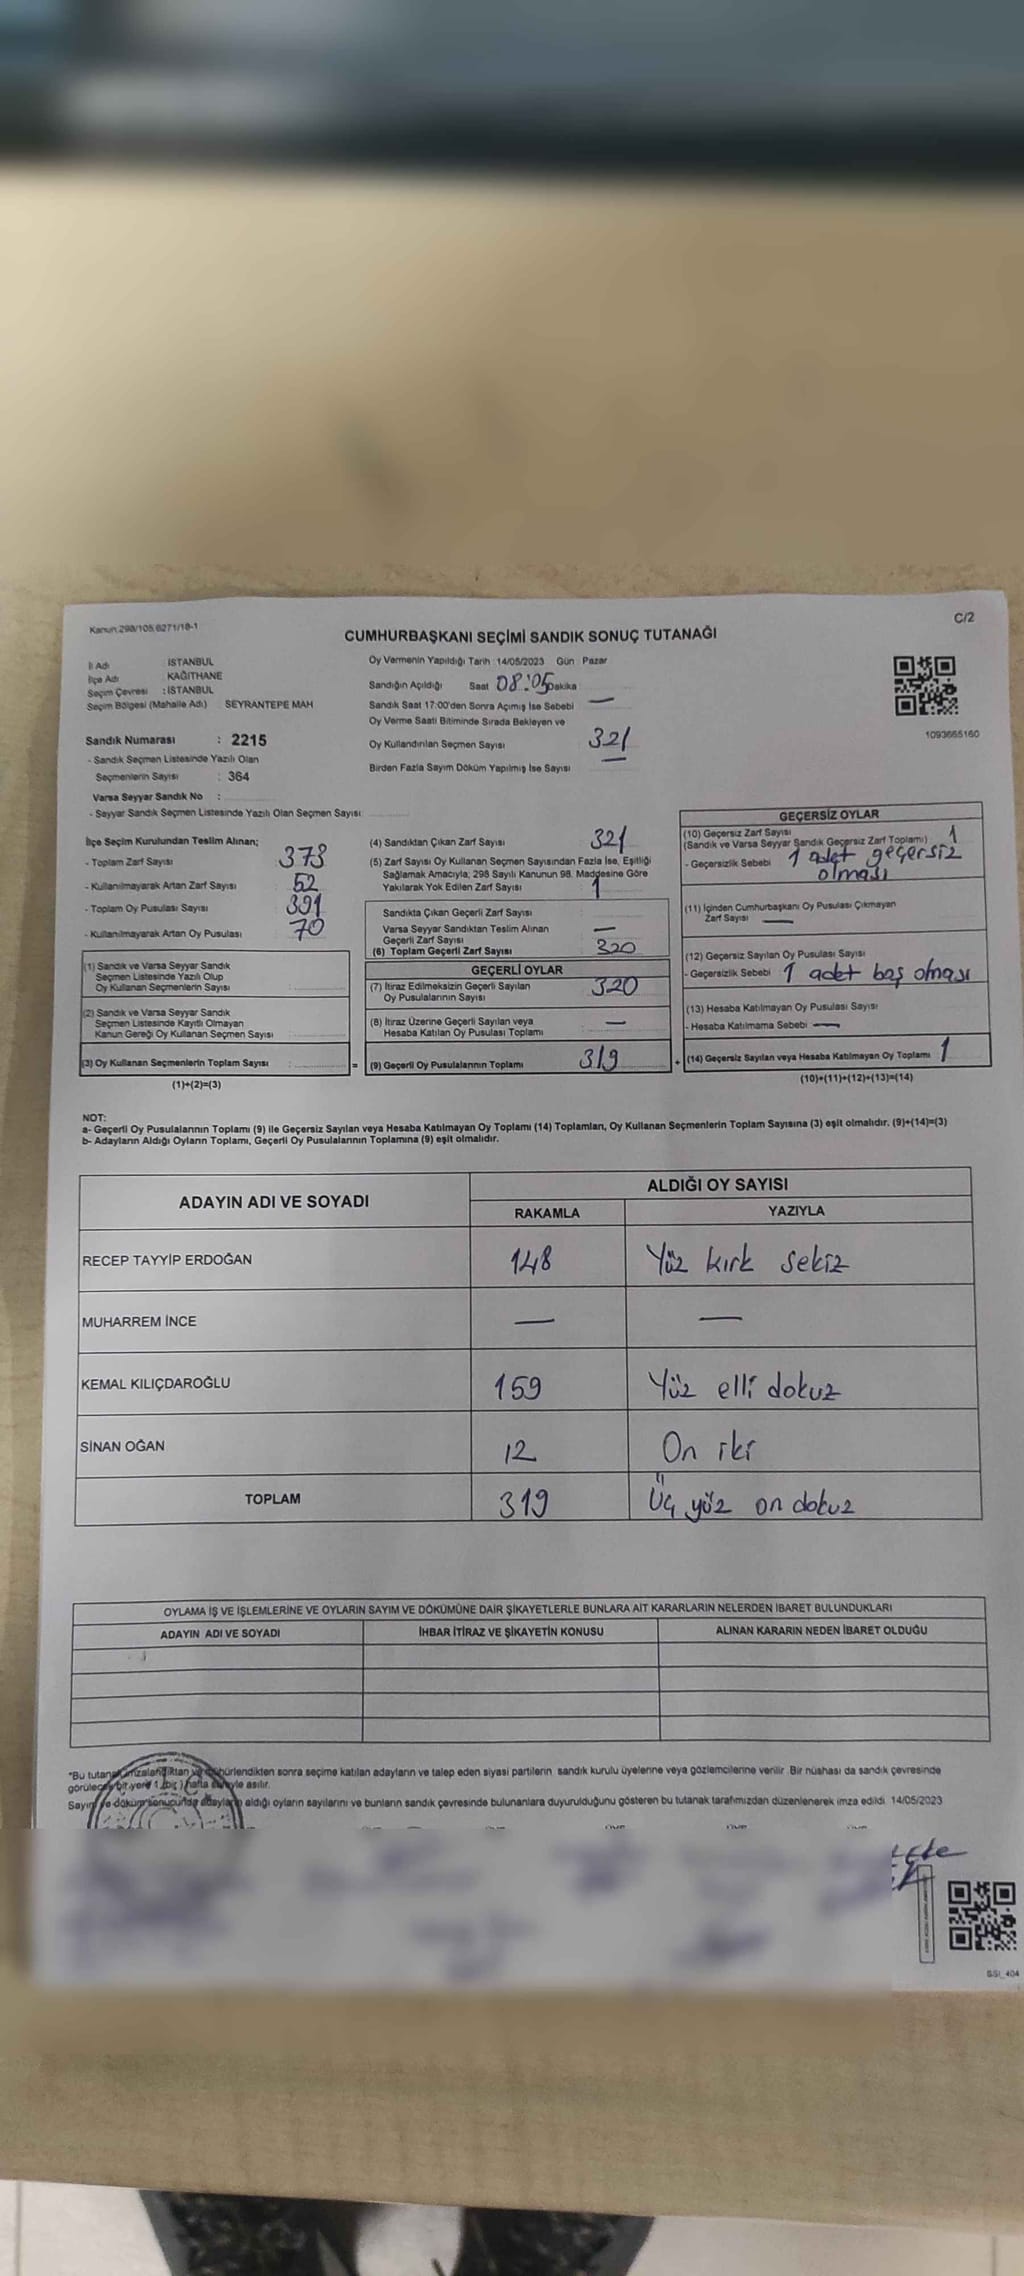 Kanun:298/105,6271/18-1
C/2
CUMHURBAŞKANI SEÇİMİ SANDIK SONUÇ TUTANAĞI
İl Adı : İSTANBUL
İlçe Adı : KAĞITHANE
Seçim Çevresi : İSTANBUL
Seçim Bölgesi (Mahalle Adı) : SEYRANTEPE MAH
Sandık Numarası : 2215
- Sandık Seçmen Listesinde Yazılı Olan
Seçmenlerin Sayısı : 364
Varsa Seyyar Sandık No :
- Seyyar Sandık Seçmen Listesinde Yazılı Olan Seçmen Sayısı
Oy Vermenin Yapıldığı Tarih :14/05/2023 Gün : Pazar
Sandığın Açıldığı Saat 08:05 Dakika
Sandık Saat 17:00'den Sonra Açımış İse Sebebi —
Oy Verme Saati Bitiminde Sırada Bekleyen ve
Oy Kullandırılan Seçmen Sayısı 321
Birden Fazla Sayım Döküm Yapılmış İse Sayısı —
1093665160
İlçe Seçim Kurulundan Teslim Alınan;
- Toplam Zarf Sayısı 373
- Kullanılmayarak Artan Zarf Sayısı 52
- Toplam Oy Pusulası Sayısı 391
- Kullanılmayarak Artan Oy Pusulası 70
(1) Sandık ve Varsa Seyyar Sandık
Seçmen Listesinde Yazılı Olup
Oy Kullanan Seçmenlerin Sayısı
(2) Sandık ve Varsa Seyyar Sandık
Seçmen Listesinde Kayıtlı Olmayan
Kanun Gereği Oy Kullanan Seçmen Sayısı
(3) Oy Kullanan Seçmenlerin Toplam Sayısı :
(1)+(2)=(3)
(4) Sandıktan Çıkan Zarf Sayısı 321
(5) Zarf Sayısı Oy Kullanan Seçmen Sayısından Fazla İse, Eşitliği
Sağlamak Amacıyla, 298 Sayılı Kanunun 98. Maddesine Göre
Yakılarak Yok Edilen Zarf Sayısı 1
Sandıkta Çıkan Geçerli Zarf Sayısı
Varsa Seyyar Sandıktan Teslim Alınan
Geçerli Zarf Sayısı —
(6) Toplam Geçerli Zarf Sayısı 320
GEÇERLİ OYLAR
(7) İtiraz Edilmeksizin Geçerli Sayılan
Oy Pusulalarının Sayısı 320
(8) İtiraz Üzerine Geçerli Sayılan veya
Hesaba Katılan Oy Pusulası Toplamı —
= (9) Geçerli Oy Pusulalarının Toplamı 319
GEÇERSİZ OYLAR
(10) Geçersiz Zarf Sayısı
(Sandık ve Varsa Seyyar Sandık Geçersiz Zarf Toplamı) 1
- Geçersizlik Sebebi 1 adet geçersiz
olması
(11) İçinden Cumhurbaşkanı Oy Pusulası Çıkmayan
Zarf Sayısı —
(12) Geçersiz Sayılan Oy Pusulası Sayısı
- Geçersizlik Sebebi 1 adet boş olması
(13) Hesaba Katılmayan Oy Pusulası Sayısı
- Hesaba Katılmama Sebebi —
+ (14) Geçersiz Sayılan veya Hesaba Katılmayan Oy Toplamı 1
(10)+(11)+(12)+(13)=(14)
NOT:
a- Geçerli Oy Pusulalarının Toplamı (9) ile Geçersiz Sayılan veya Hesaba Katılmayan Oy Toplamı (14) Toplamları, Oy Kullanan Seçmenlerin Toplam Sayısına (3) eşit olmalıdır. (9)+(14)=(3)
b- Adayların Aldığı Oyların Toplamı, Geçerli Oy Pusulalarının Toplamına (9) eşit olmalıdır.
ADAYIN ADI VE SOYADI
ALDIĞI OY SAYISI
RAKAMLA YAZIYLA
RECEP TAYYİP ERDOĞAN 148 Yüz kırk sekiz
MUHARREM İNCE — —
KEMAL KILIÇDAROĞLU 159 Yüz elli dokuz
SİNAN OĞAN 12 On iki
TOPLAM 319 Üç yüz on dokuz
OYLAMA İŞ VE İŞLEMLERİNE VE OYLARIN SAYIM VE DÖKÜMÜNE DAİR ŞİKAYETLERLE BUNLARA AİT KARARLARIN NELERDEN İBARET BULUNDUKLARI
ADAYIN ADI VE SOYADI İHBAR İTİRAZ VE ŞİKAYETİN KONUSU ALINAN KARARIN NEDEN İBARET OLDUĞU
*Bu tutanak imzalandıktan ve mühürlendikten sonra seçime katılan adayların ve talep eden siyasi partilerin sandık kurulu üyelerine veya gözlemcilerine verilir. Bir nüshası da sandık çevresinde
görülecek bir yere 1 (bir) hafta süreyle asılır.
Sayım ve döküm sonucunda adayların aldığı oyların sayılarını ve bunların sandık çevresinde bulunanlara duyurulduğunu gösteren bu tutanak tarafımızdan düzenlenerek imza edildi. 14/05/2023
SSI_404